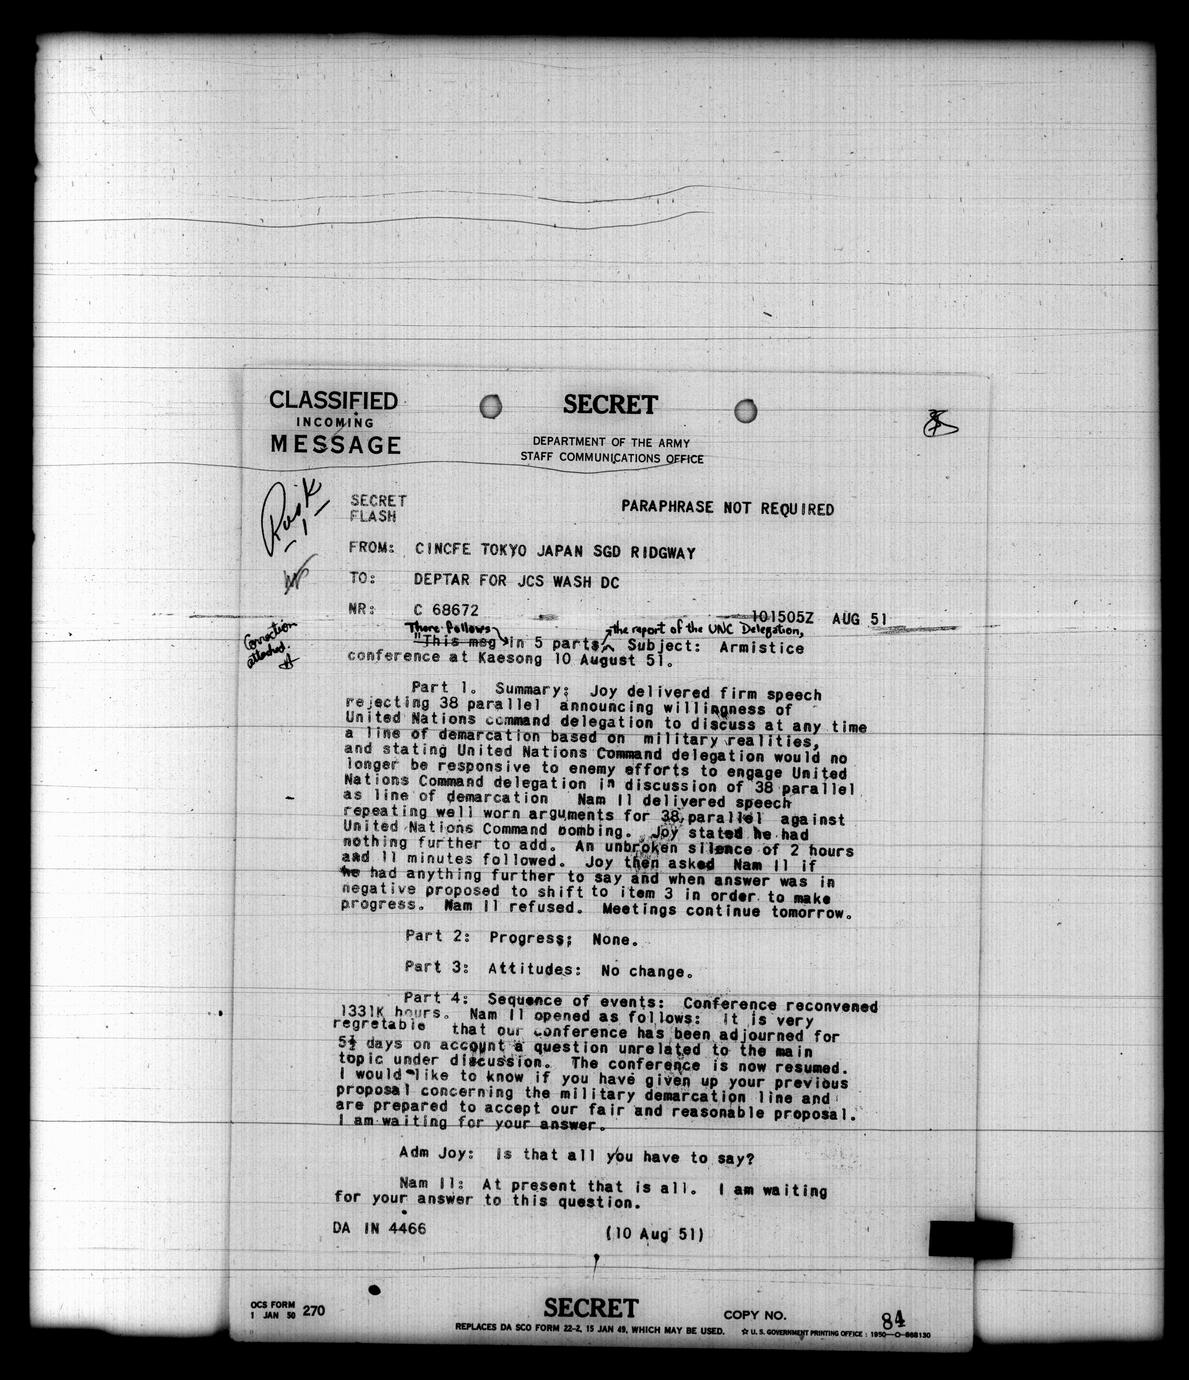 CLASSIFIED
INCOMING
MESSAGE
SECRET
DEPARTMENT OF THE ARMY
STAFF COMMUNICATIONS OFFICE
Rusk
SECRET
FLASH
PARAPHRASE NOT REQUIRED
FROM: CINCFE TOKYO JAPAN SGD RIDGWAY
TO: DEPTAR FOR JCS WASH DC
NR: C 68672
101505Z AUG 51
Correction
attached.
There follows
the report of the UNC Delegation,
"This msg in 5 parts. Subject: Armistice
conference at Kaesong 10 August 51.
Part 1. Summary: Joy delivered firm speech
rejecting 38 parallel announcing willingness of
United Nations command delegation to discuss at any time
a line of demarcation based on military realities,
and stating United Nations Command delegation would no
longer be responsive to enemy efforts to engage United
Nations Command delegation in discussion of 38 parallel
as line of demarcation Nam Il delivered speech
repeating well worn arguments for 38 parallel against
United Nations Command bombing. Joy stated he had
nothing further to add. An unbroken silence of 2 hours
and 11 minutes followed. Joy then asked Nam Il if
he had anything further to say and when answer was in
negative proposed to shift to item 3 in order to make
progress. Nam Il refused. Meetings continue tomorrow.
Part 2: Progress; None.
Part 3: Attitudes: No change.
Part 4: Sequence of events: Conference reconvened
1331K hours. Nam Il opened as follows: It is very
regretable that our conference has been adjourned for
5½ days on account a question unrelated to the main
topic under discussion. The conference is now resumed.
I would like to know if you have given up your previous
proposal concerning the military demarcation line and
are prepared to accept our fair and reasonable proposal.
I am waiting for your answer.
Adm Joy: Is that all you have to say?
Nam Il: At present that is all. I am waiting
for your answer to this question.
DA IN 4466
(10 Aug 51)
OCS FORM
1 JAN 50 270
SECRET
COPY NO.
84
REPLACES DA SCO FORM 22-2, 15 JAN 49, WHICH MAY BE USED.
☆ U. S. GOVERNMENT PRINTING OFFICE : 1950—O-868130